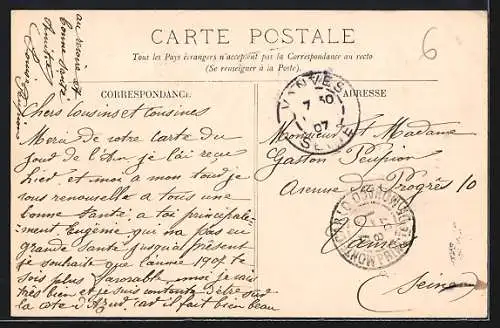 CARTE POSTALE
Tous les Pays étrangers n'acceptent pas la Correspondance au recto
(Se renseigner à la Poste).
CORRESPONDANCE
ADRESSE
au revoir et
bonne Santé
Chers Cousins et Cousines
Merci de votre carte du
jour de l'An je l'ai reçu
hier et moi a mon tour je
vous renouvelle a tous une
bonne Santé a toi principale-
ment Eugénie qui n'a pas eu
grande Santé jusqu'a présent
je souhaite que l'année 1907 te
sois plus favorable moi je vais
très bien et je suis contente d'être sur
la côte d'Azur car il fait bien beau
Monsieur et Madame
Gaston
Avenue du Progrès 10
Vanves
(Seine)
VANVES
7 50
07
SEINE
6